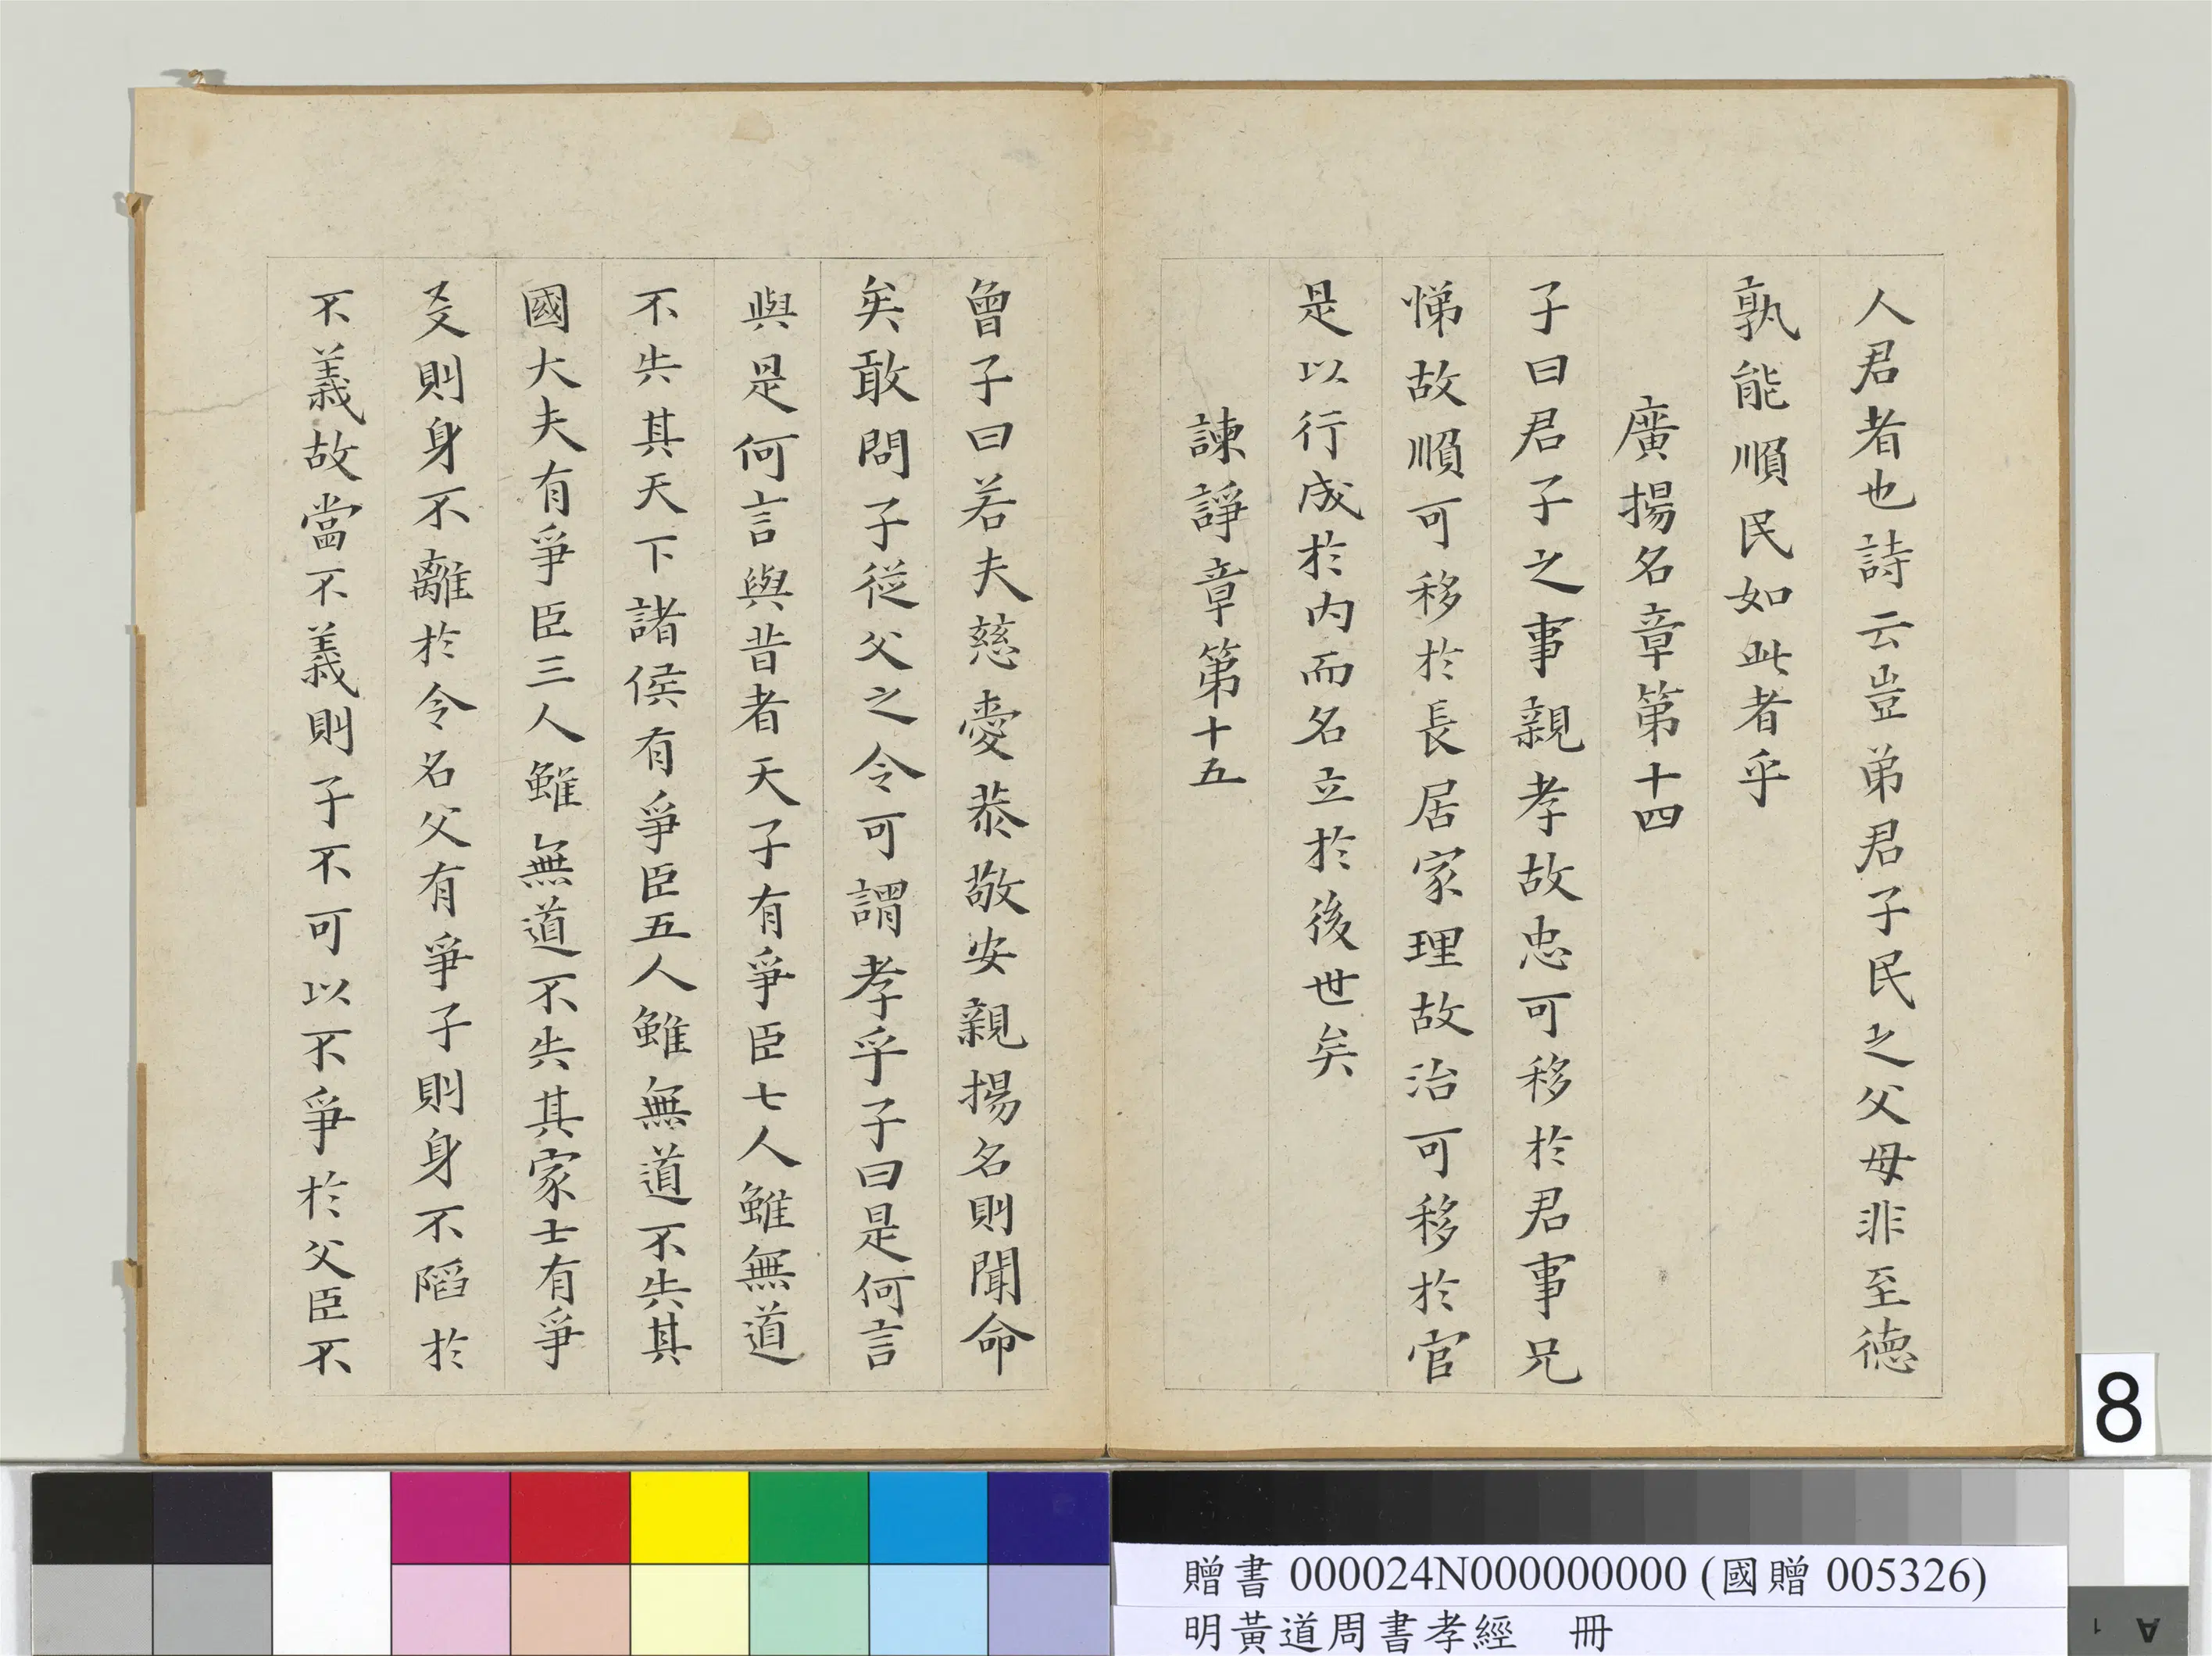 人君者也詩云豈弟君子民之父母非至德
孰能順民如此者乎
廣揚名章第十四
子曰君子之事親孝故忠可移於君事兄
悌故順可移於長居家理故治可移於官
是以行成於内而名立於後世矣
諫諍章第十五
曾子曰若夫慈愛恭敬安親揚名則聞命
矣敢問子從父之令可謂孝乎子曰是何言
與是何言與昔者天子有爭臣七人雖無道
不失其天下諸侯有爭臣五人雖無道不失其
國大夫有爭臣三人雖無道不失其家士有爭
友則身不離於令名父有爭子則身不陷於
不義故當不義則子不可以不爭於父臣不
8
贈書 000024N000000000 (國贈 005326)
明黃道周書孝經 冊
A 1